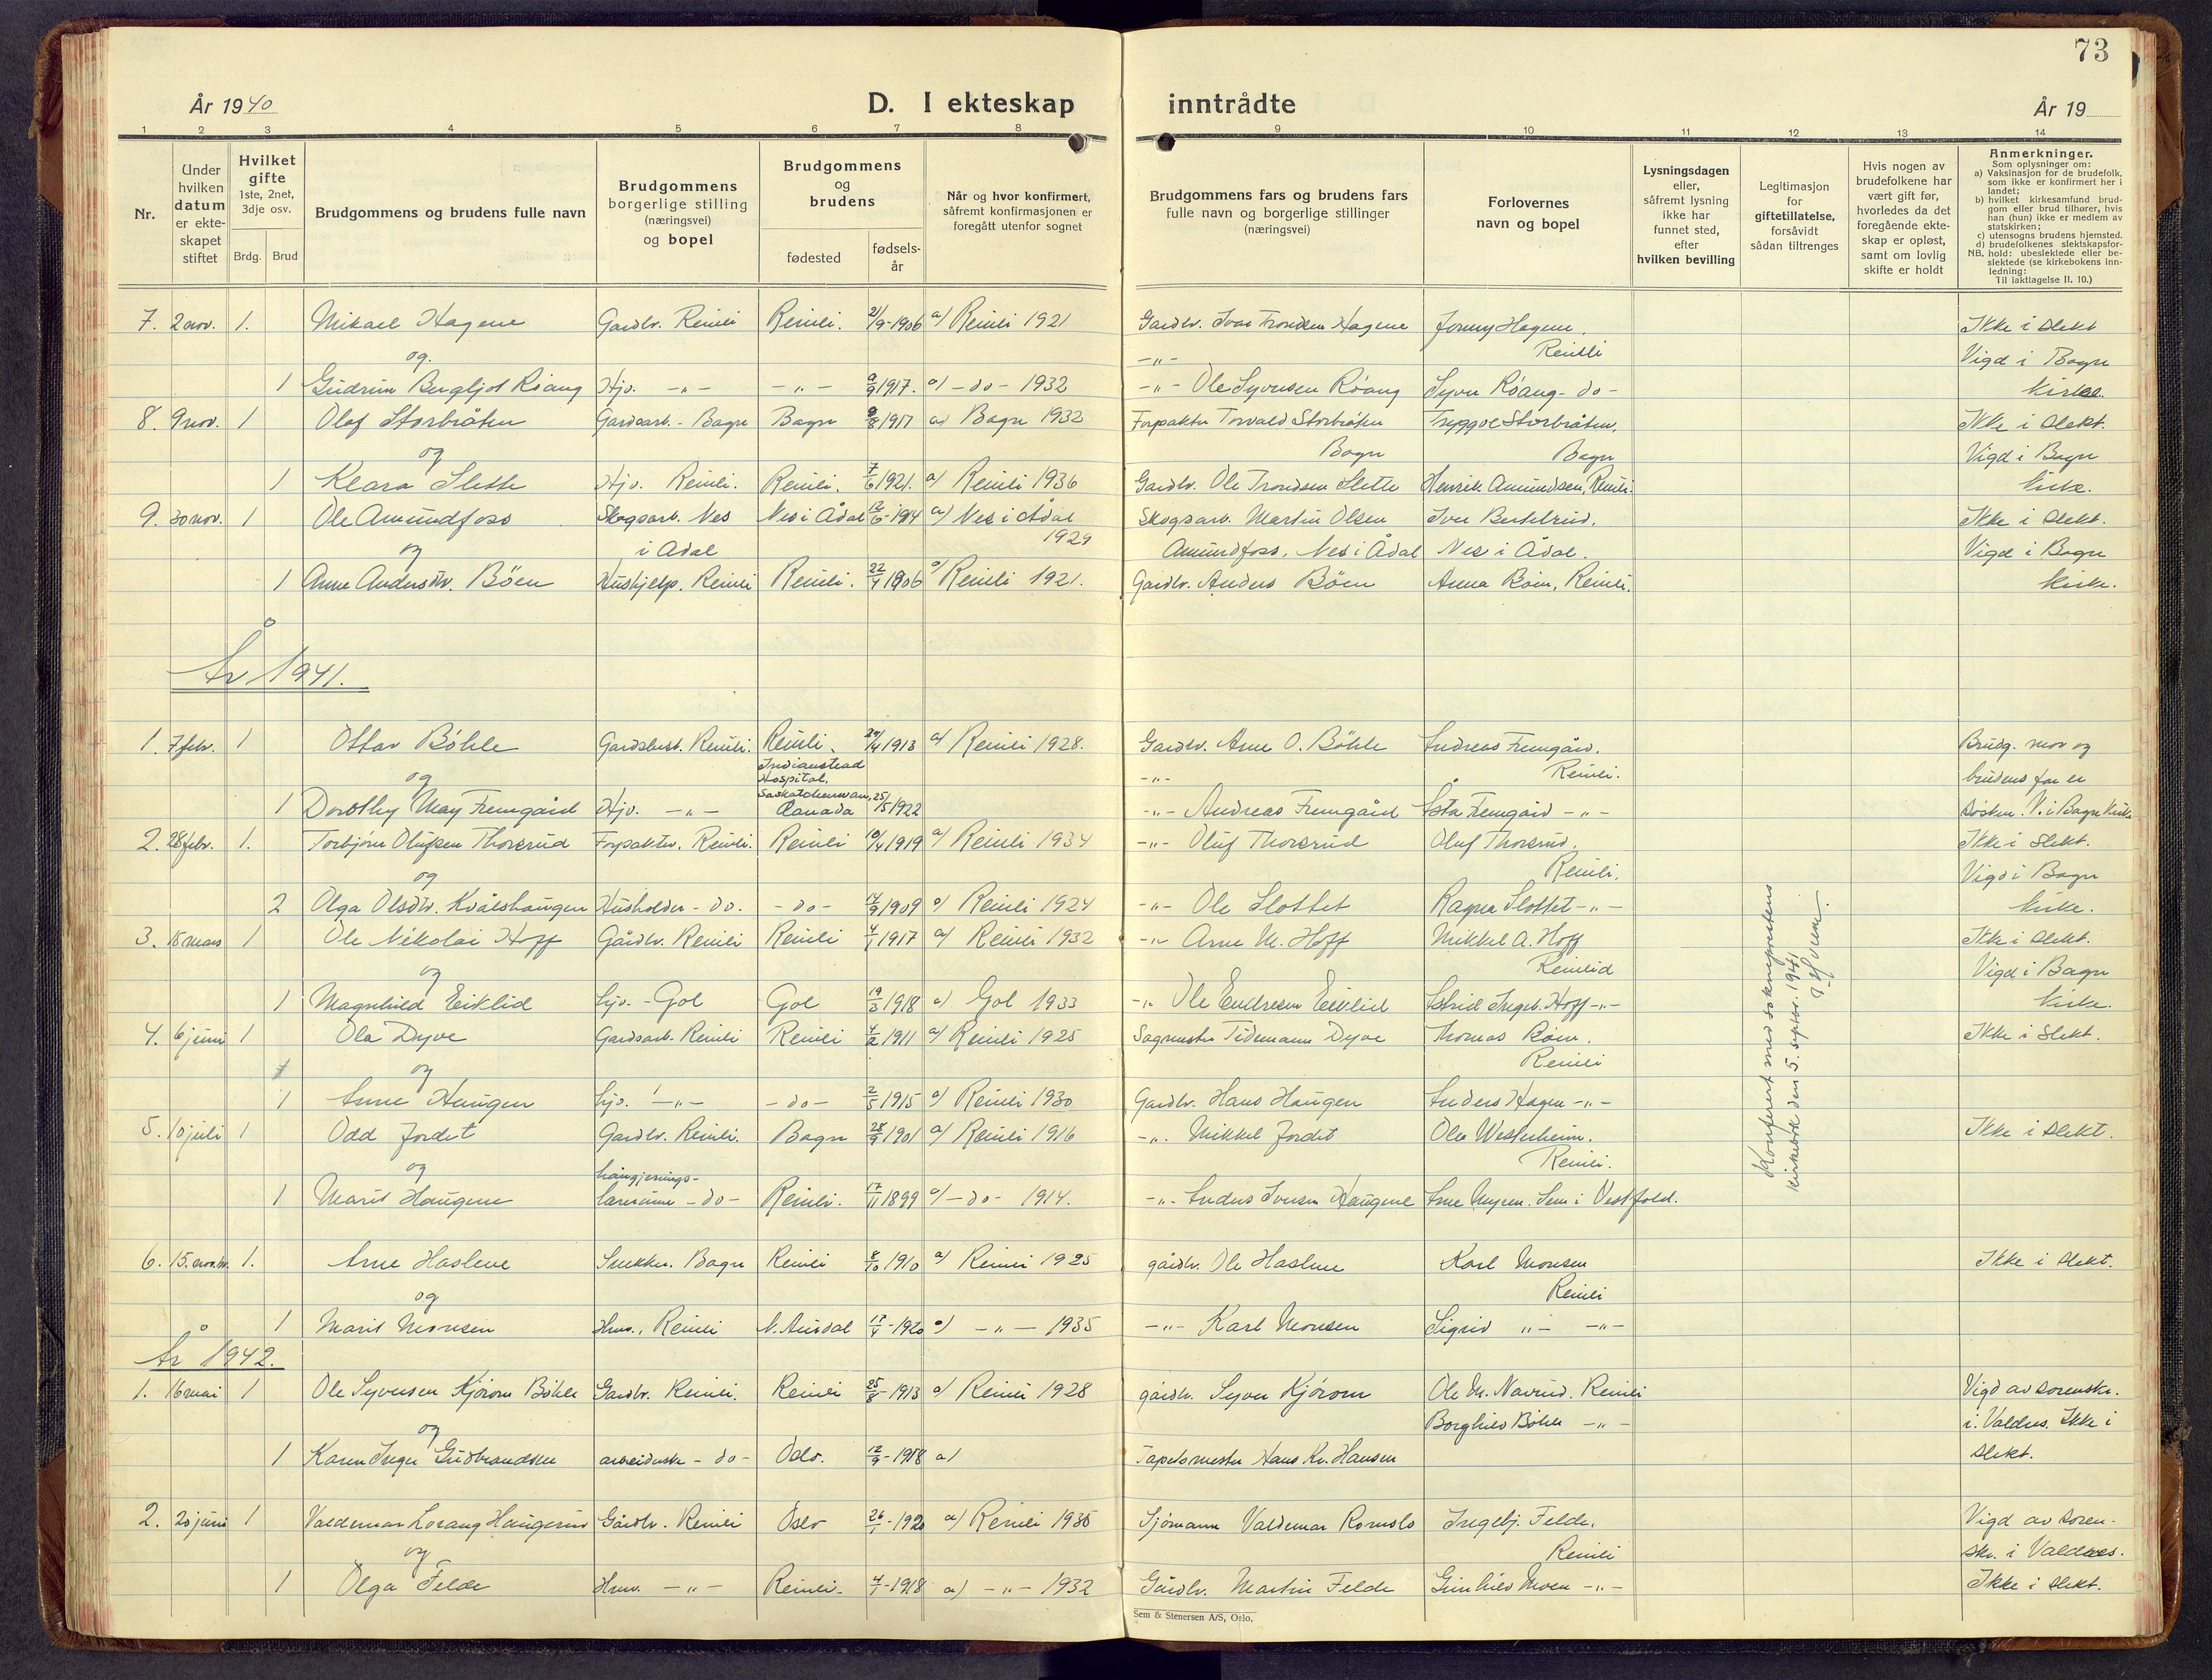 73
År 1940 D. I ekteskap inntrådte År 19
1 2 3 4 5 6 7 8 9 10 11 12 13 14
Nr.
Under hvilken datum er ekteskapet stiftet
Hvilket gifte 1ste, 2net, 3dje osv.
Brdg. Brud
Brudgommens og brudens fulle navn
Brudgommens borgerlige stilling (næringsvei) og bopel
Brudgommens og brudens
fødested fødsels-år
Når og hvor konfirmert, såfremt konfirmasjonen er foregått utenfor sognet
Brudgommens fars og brudens fars fulle navn og borgerlige stillinger (næringsvei)
Forlovernes navn og bopel
Lysningsdagen eller, såfremt lysning ikke har funnet sted, efter hvilken bevilling
Legitimasjon for giftetillatelse, forsåvidt sådan tiltrenges
Hvis nogen av brudefolkene har vært gift før, hvorledes da det foregående ekteskap er opløst, samt om lovlig skifte er holdt
Anmerkninger.
Som oplysninger om:
a) Vaksinasjon for de brudefolk, som ikke er konfirmert her i landet;
b) hvilket kirkesamfund brudgom eller brud tilhører, hvis han (hun) ikke er medlem av statskirken;
c) utensogns brudens hjemsted.
d) brudefolkenes slektskapsforhold: ubeslektede eller beslektede (se kirkebokens innledning:
NB. Til iakttagelse II. 10.)
7. 2 nov. 1. Mikael Hagene Gardbr. Reinli Reinli. 21/9-1906 a) Reinli 1921 Gardbr. Ivar Trondsen Hagene Jonny Hagene. Ikke i slekt
og. -"- Reinli Vigd i Bagn
1 Gudrun Bergljot Røang Hjv. -"- -"- 9/9 1917. a) -do- 1932 -"- Ole Syversen Røang Syver Røang -do- kirke.
8. 9 nov. 1 Olaf Storbråten Gardsarb. - Bagn Bagn 9/8 1917 a) Bagn 1932 Forpakter Torvald Storbråten Tryggve Storbråten. Ikke i slekt.
og Bagn Bagn Vigd i Bagn
1 Klara Slette Hjv. Reinli. Reinli. 7/6 1921. a) Reinli 1936 Gardbr. Ole Trondsen Slette Henrik Amundsen, Reinli. kirke.
9. 30 nov. 1 Ole Amundfoss Skogsarb. Nes Nes i Ådal 12/6-1914 a) Nes i Ådal Skogsarb. Martin Olsen Iver Bertelrud. Ikke i slekt.
og i Ådal 1929 Amundfoss, Nes i Ådal Nes i Ådal. Vigd i Bagn
1 Anne Andersdtr. Böen Hushjelp. Reinli Reinli. 22/4 1906 a) Reinli 1921. Gardbr. Anders Böen Anna Böen, Reinli. kirke.
År 1941.
1. 7 febr. 1 Ottar Böhle Gardsbest. Reinli. Reinli. 24/4 1913 a) Reinli 1928. Gardbr. Arne O. Böhle Andreas Fremgård. Brudg. mor og
og Indianstead Hospital, -"- Reinli. brudens far er
1 Dorothy May Fremgård Hjv. -"- Saskatchewan, Canada 25/5 1922 -"- Andreas Fremgård Åsta Fremgård -"- søsken. V. i Bagn kirke
2. 28 febr. 1. Torbjørn Olufsen Thorsrud Forpakter. Reinli. Reinli 10/4 1919 a) Reinli 1934 -"- Oluf Thorsrud Oluf Thorsrud. Ikke i slekt.
og Reinli. Vigd i Bagn
2 Olga Olsdtr. Kvålshaugen Husholder -do- -do- 14/9 1909 a) Reinli 1924 -"- Ole Slottet Ragna Slottet -"- kirke.
3. 15 mars 1 Ole Nikolai Hoff Gårdbr. Reinli Reinli 4/1 1917 a) Reinli 1932 -"- Arne M. Hoff Mikkel A. Hoff Ikke i slekt.
og Reinlid Vigd i Bagn
1 Magnhild Eiklid hjv. - Gol Gol 19/3 1918 a) Gol 1933 -"- Ole Endresen Eiklid Astrid Ingeb. Hoff -"- kirke.
4. 6 juni 1 Ola Dyve Gardsarb. Reinli Reinli 4/2 1911 a) Reinli 1925 Sagmester Tidemann Dyve Thomas Böen. Ikke i slekt.
og Reinli
1 Anne Haugen hjv. -"- -do- 2/5 1915 a) Reinli 1930 Gardbr. Hans Haugen Anders Hagen -"-
5. 10 juli 1 Odd Jordet Gardbr. Reinli. Bagn 28/9 1901 a) Reinli 1916 -"- Mikkel Jordet Ola Westerheim. Ikke i slekt.
og hångjernings- Reinli.
1 Marit Haugene lærerinne -do- Reinli. 17/11 1899 a) -do- 1914. -"- Anders Iversen Haugene Arne Myren. Sem i Vestfold.
Konferert med soknepresten
kirkebok den 5. septbr. 1941
6. 15. novbr. 1. Arne Haslene Snekker. Bagn Reinli 8/10 1910 a) Reinli 1925 gårdbr. Ole Haslene Karl Monsen Ikke i slekt.
og Reinli
1 Marit Monsen Hmv., Reinli N. Aurdal 17/4-1920 a) -"- 1935 -"- Karl Monsen Sigrid "- -"-
År 1942.
1. 16 mai 1 Ole Syversen Kjörom Böhle Gardbr. Reinli. Reinli 25/8-1913 a) Reinli 1928 gårdbr. Syver Kjörom Ole M. Navrud. Reinli Vigd av sorenskr.
og Borghild Böhle -"- i Valdres. Ikke i
1 Karen Inger Gudbrandsen arbeiderske -do- Oslo. 12/9-1918 a) Tapetsmester Hans Kr. Hansen slekt.
2. 20 juni 1 Valdemar Lorang Haugerud Gårdbr. Reinli Oslo 26/1-1920 a) Reinli 1935 Sjömann Valdemar Romslo Ingebj. Felde. Vigd av soren-
og Reinli skr. i Valdres.
1 Olga Felde Hmv. -"- Reinli- 4/1-1918 a) -"- 1932 Gårdbr. Martin Felde Gunhild Moen -"- Ikke i slekt.
Sem & Stenersen A/S, Oslo.